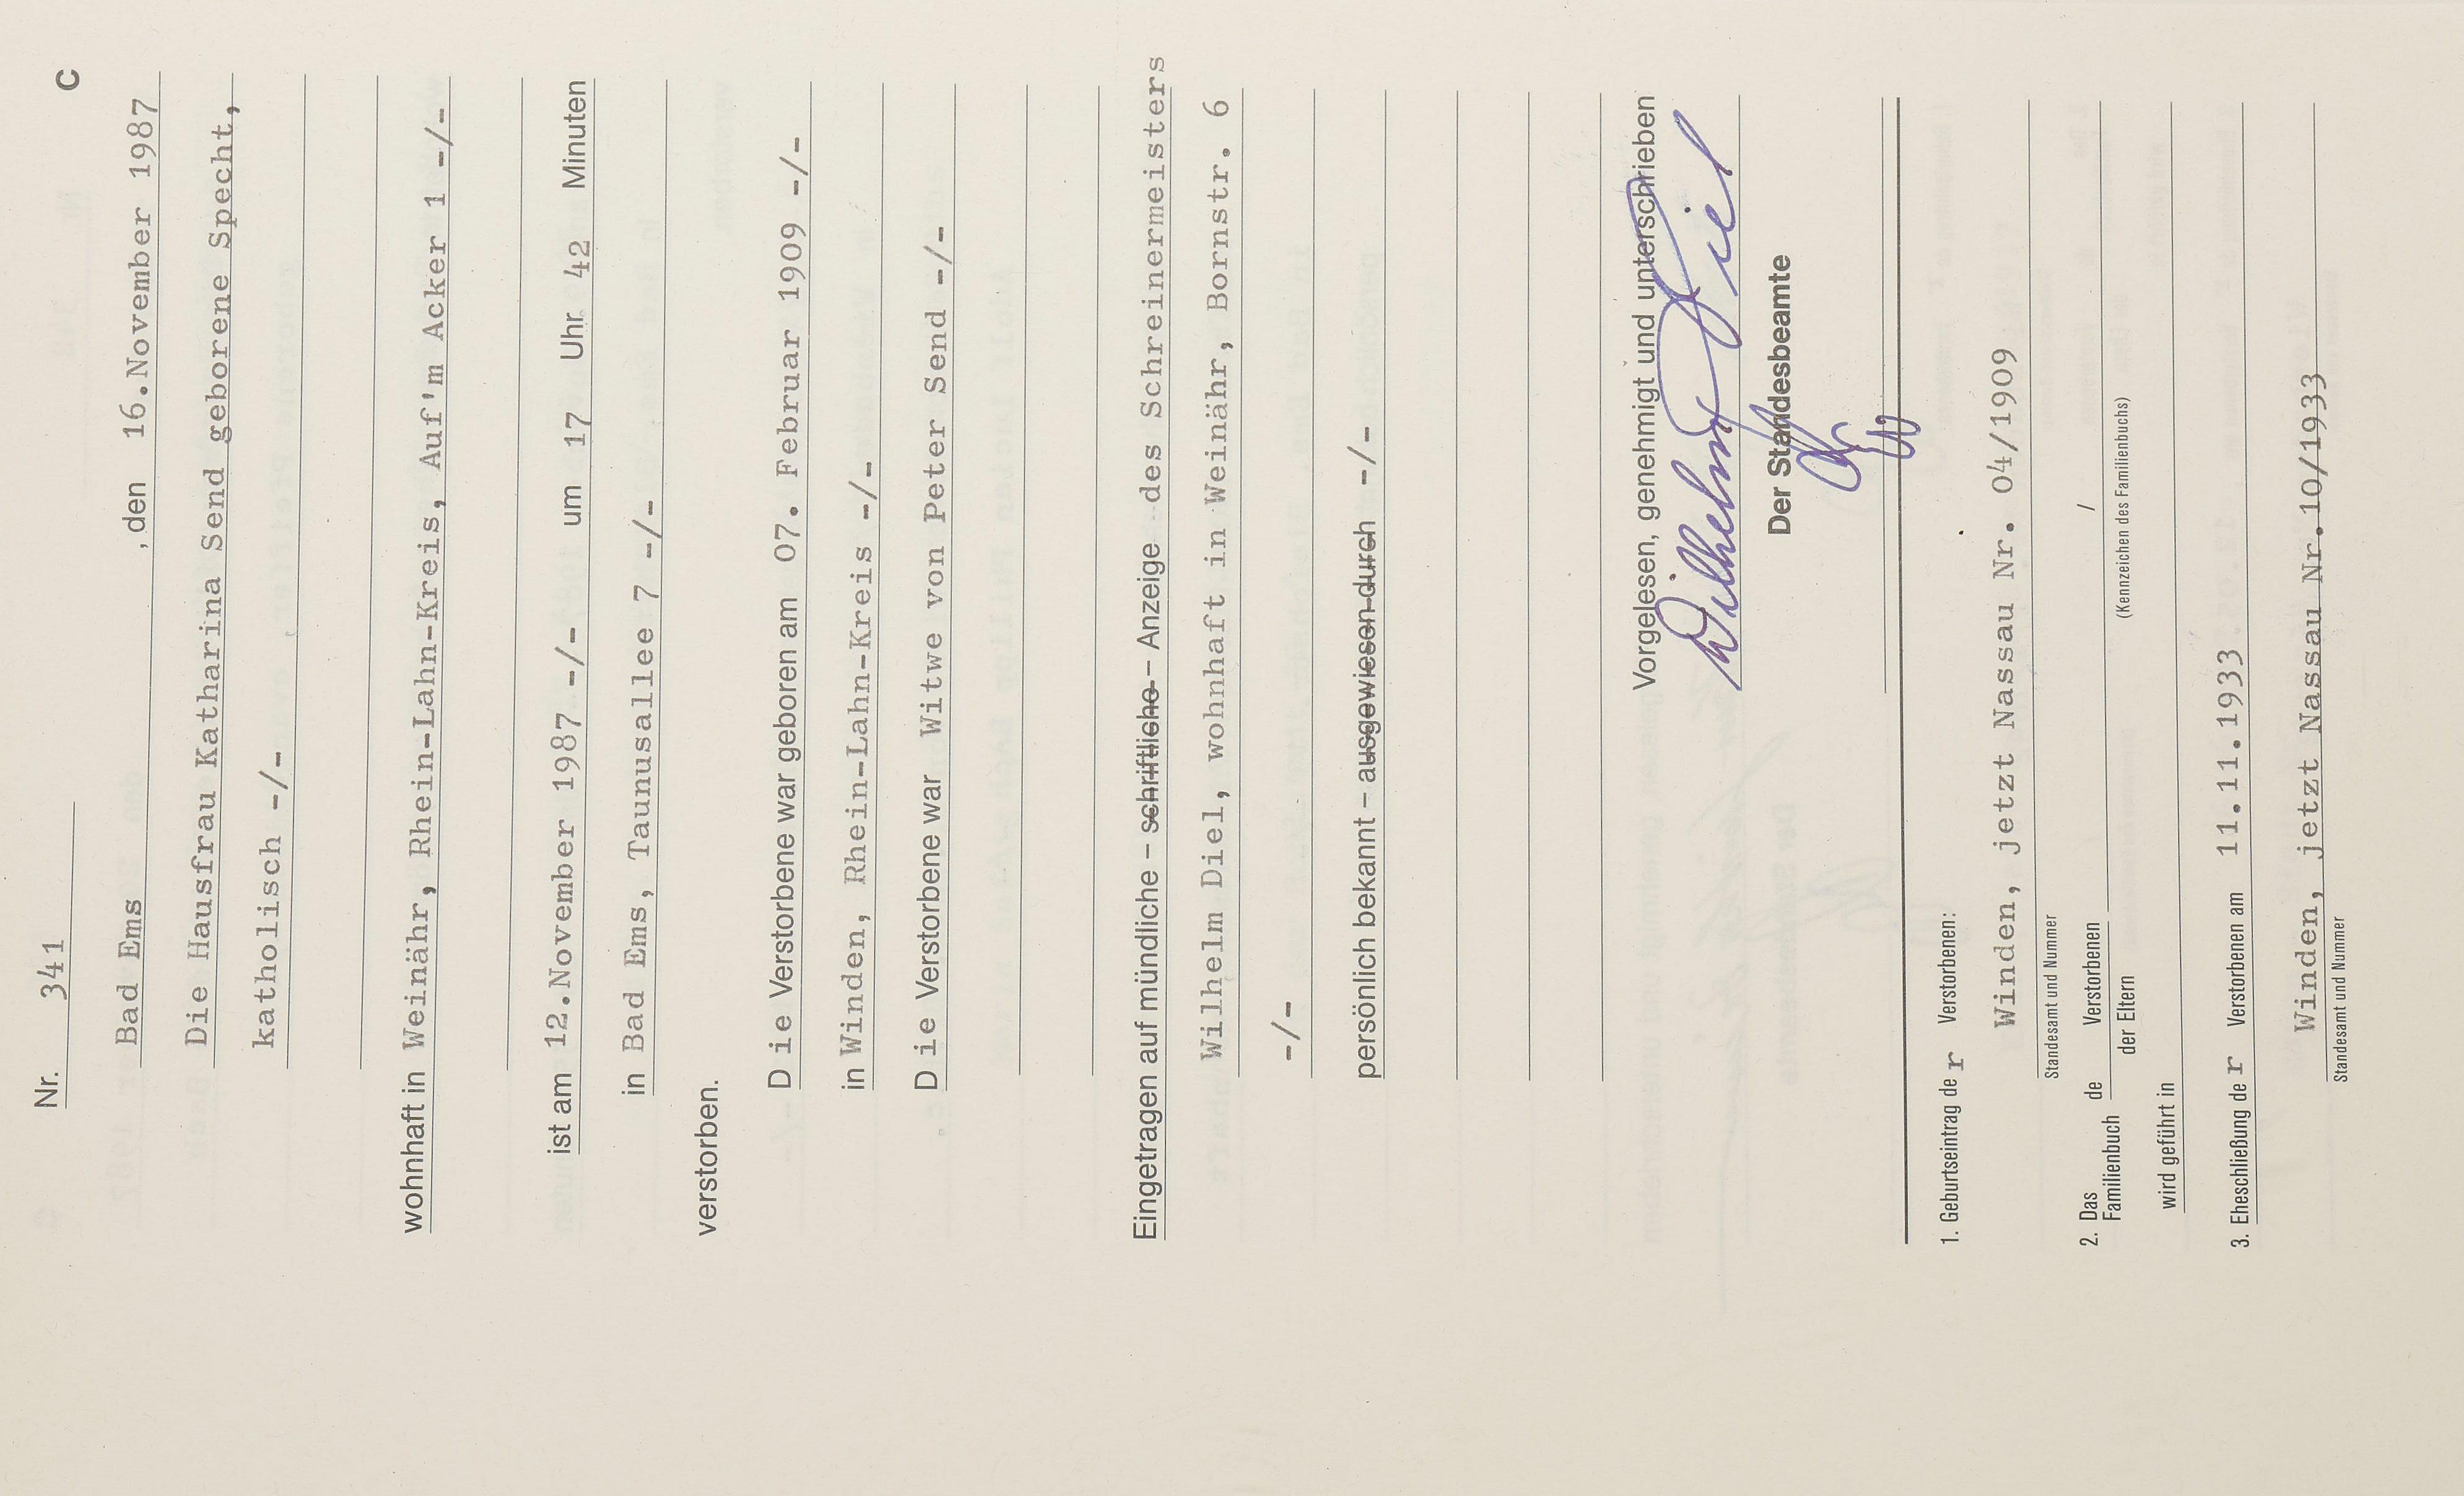 Nr. 341 C
Bad Ems , den 16.November 1987
Die Hausfrau Katharina Send geborene Specht,
katholisch -/-
wohnhaft in Weinähr, Rhein-Lahn-Kreis, Auf'm Acker 1 -/-
ist am 12.November 1987 -/- um 17 Uhr 42 Minuten
in Bad Ems, Taunusallee 7 -/-
verstorben.
D ie Verstorbene war geboren am 07. Februar 1909 -/-
in Winden, Rhein-Lahn-Kreis -/-
D ie Verstorbene war Witwe von Peter Send -/-
Eingetragen auf mündliche – schriftliche – Anzeige des Schreinermeisters
Wilhelm Diel, wohnhaft in Weinähr, Bornstr. 6
-/-
persönlich bekannt – ausgewiesen durch -/-
Vorgelesen, genehmigt und unterschrieben
Wilhelm Diel
Der Standesbeamte
1. Geburtseintrag de r Verstorbenen:
Winden, jetzt Nassau Nr. 04/1909
Standesamt und Nummer
2. Das Familienbuch de Verstorbenen / der Eltern /
(Kennzeichen des Familienbuchs)
wird geführt in
3. Eheschließung de r Verstorbenen am 11.11.1933
Winden, jetzt Nassau Nr.10/1933
Standesamt und Nummer